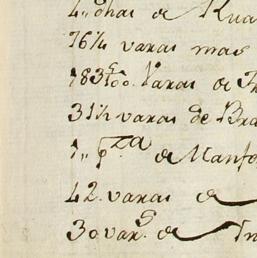 4,, dhas de Rua
16¼ varas mas
183 6/00 Varas de Fr
31½ varas de Bra
1,, pza de Manfo
42. varas de
30 vars. de In